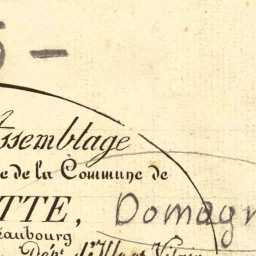 5 -
Assemblage
e de la Commune de
TTE, Domagn
eaubourg
Dépt. d'Ille et Vilaine